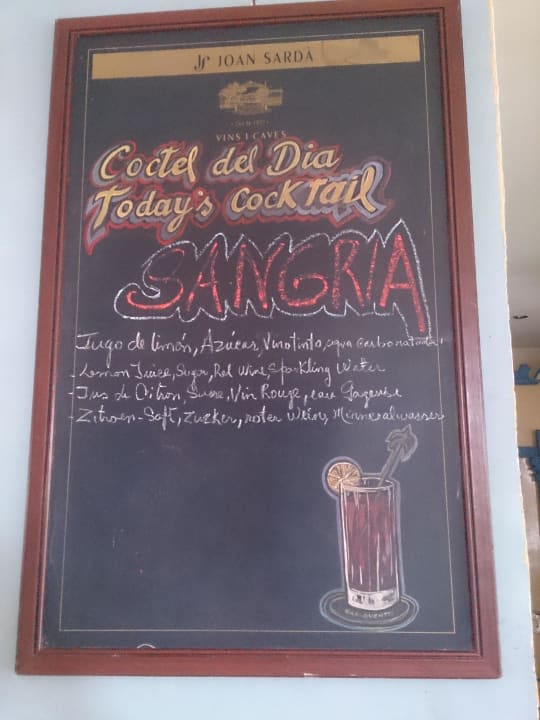 JS JOAN SARDÀ
VINS I CAVES
Coctel del Dia
Today's Cocktail
SANGRIA
Jugo de limón, Azúcar, Vinotinto, agua carbonatada
- Lemon Juice, Sugar, Red Wine, Sparkling Water
- Jus de Citron, Sucre, Vin Rouge, eau Gazeuse
- Zitroen-Saft, Zucker, roter Wein, Minneralwasser